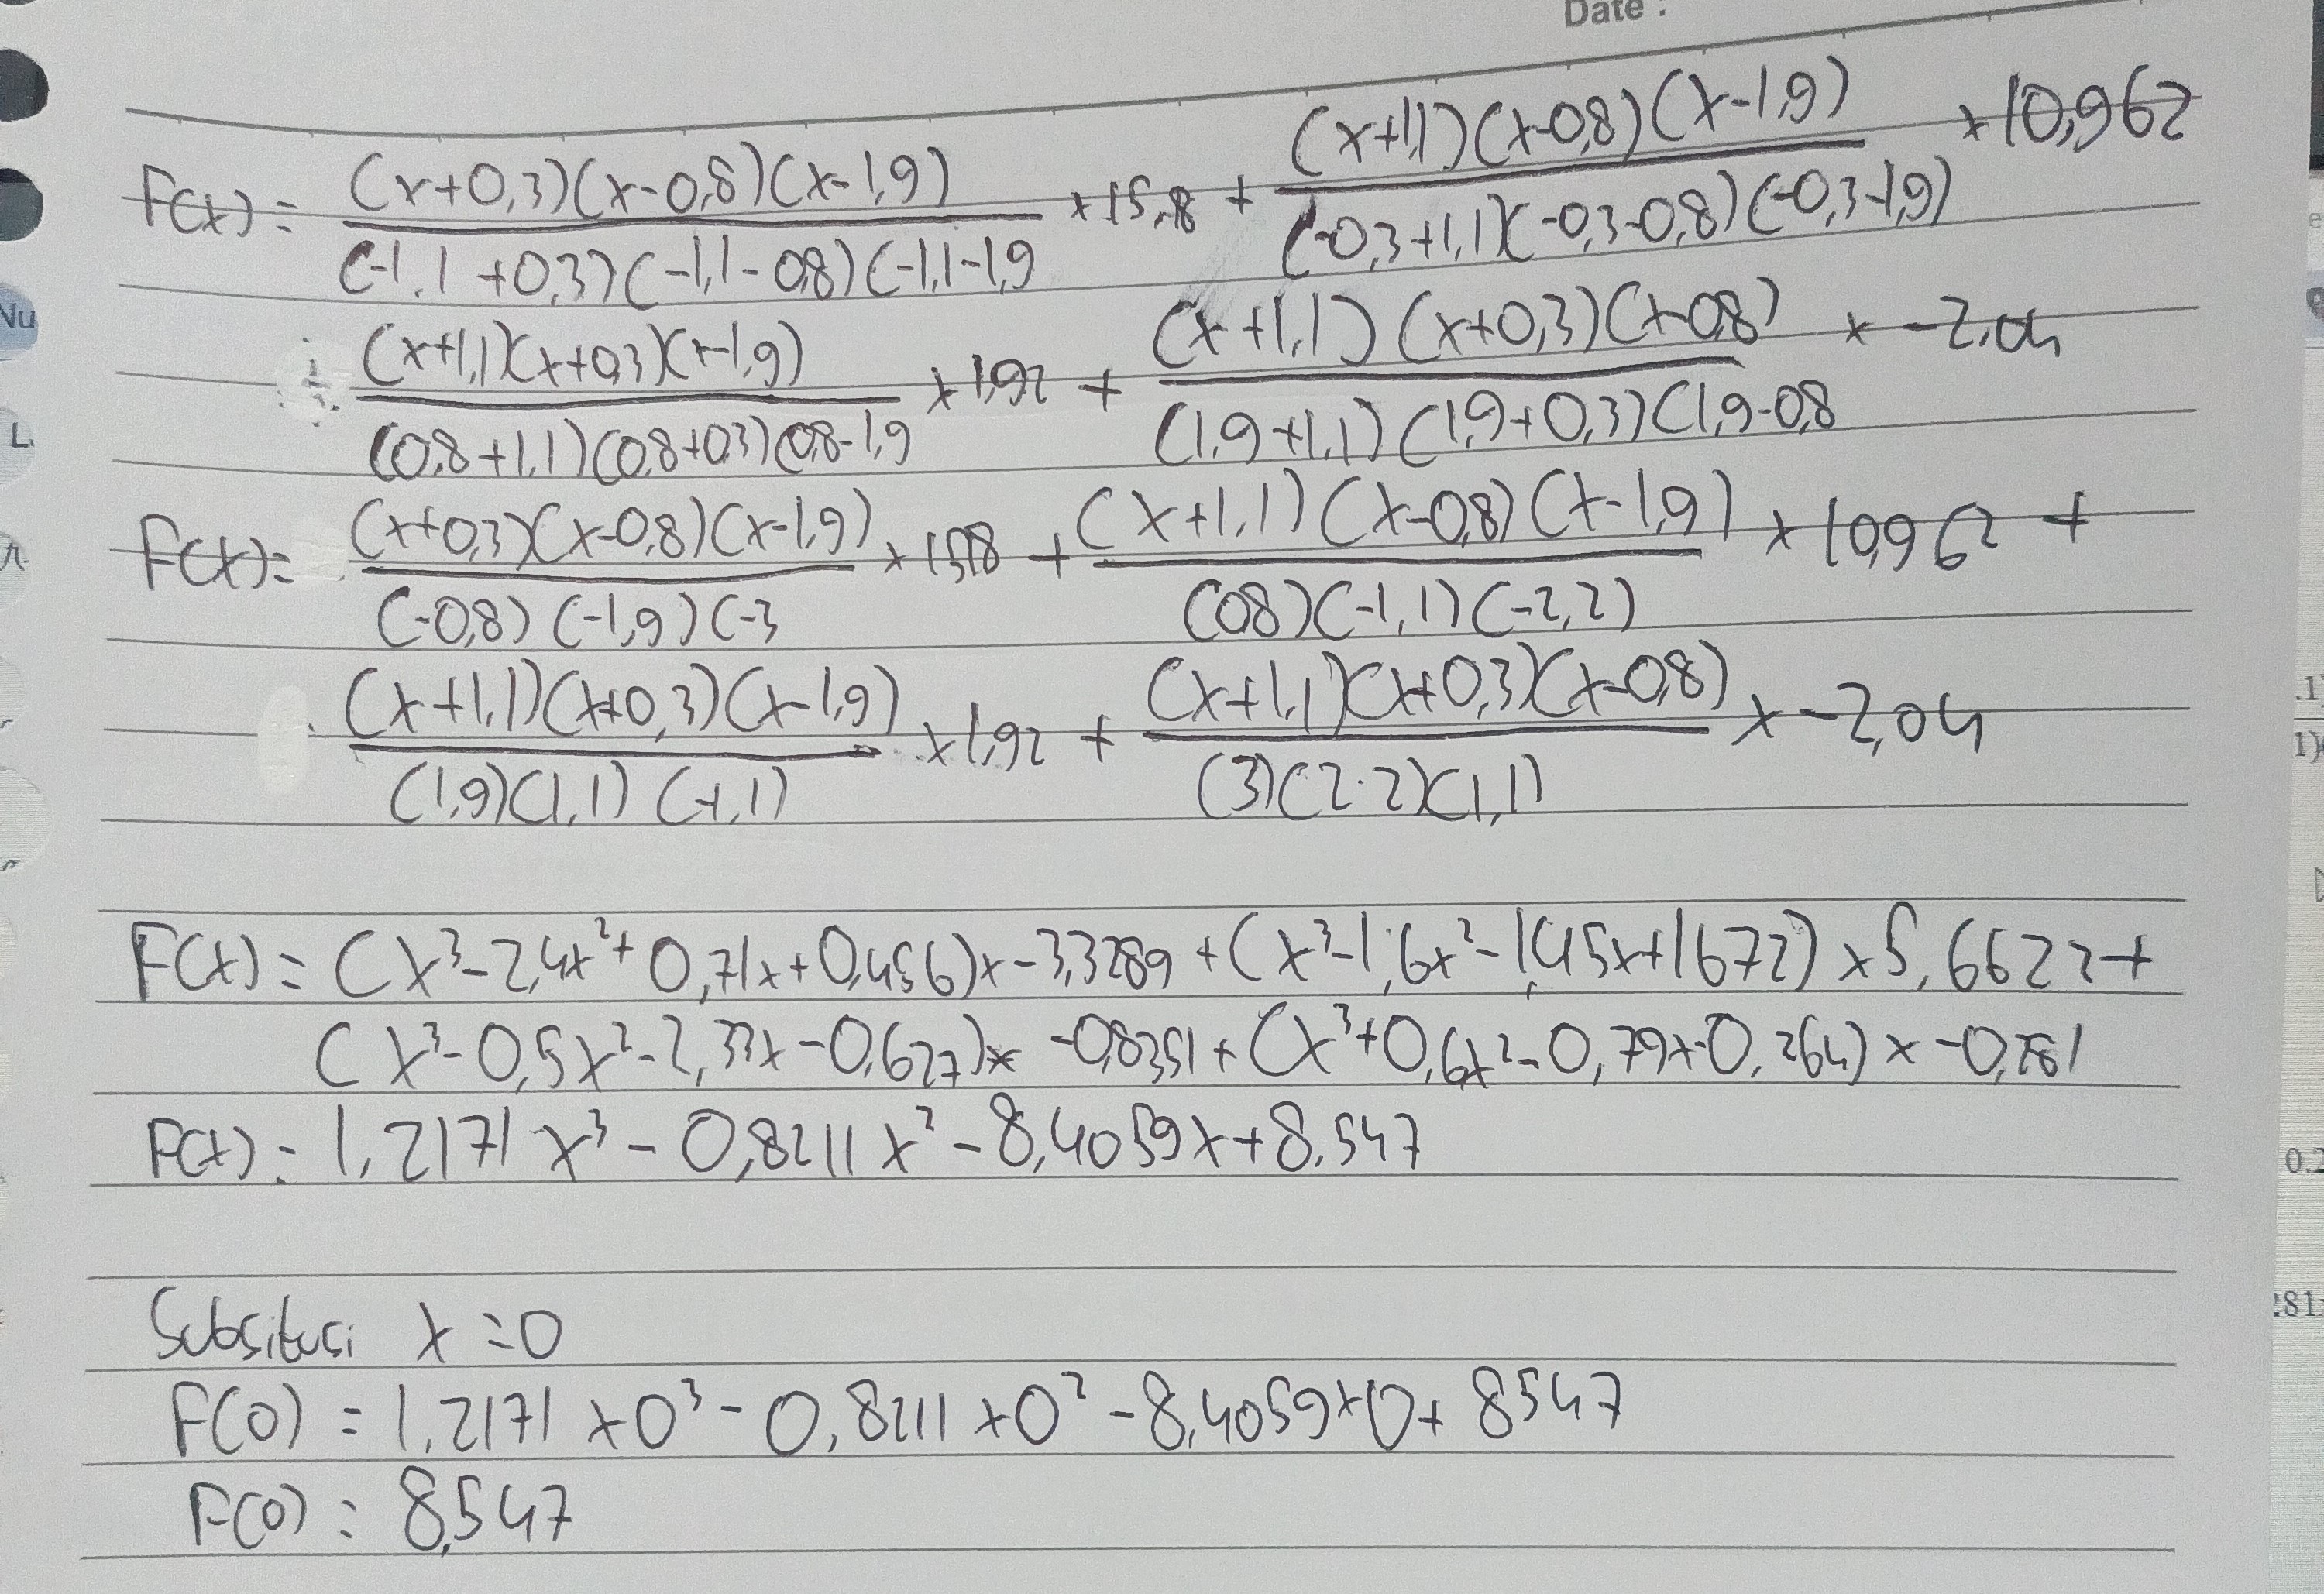 Date :
F(x) = (x+0,3)(x-0,8)(x-1,9) / (-1,1+0,3)(-1,1-0,8)(-1,1-1,9 × 15,18 + (x+1,1)(x-0,8)(x-1,9) / (-0,3+1,1)(-0,3-0,8)(-0,3-1,9) × 10,962
(x+1,1)(x+0,3)(x-1,9) / (0,8+1,1)(0,8+0,3)(0,8-1,9 × 1,92 + (x+1,1)(x+0,3)(x-0,8) / (1,9+1,1)(1,9+0,3)(1,9-0,8 × -2,04
F(x) = (x+0,3)(x-0,8)(x-1,9) / (-0,8)(-1,9)(-3 × 15,18 + (x+1,1)(x-0,8)(x-1,9) / (0,8)(-1,1)(-2,2) × 10,962 +
(x+1,1)(x+0,3)(x-1,9) / (1,9)(1,1)(-1,1) × 1,92 + (x+1,1)(x+0,3)(x-0,8) / (3)(2.2)(1,1) × -2,04
F(x) = (x³-2,4x²+0,71x+0,456)x-3,3289 + (x³-1,6x²-1,45x+1672) × 5,6622 +
(x³-0,5x²-2,33x-0,627)× -0,8351 + (x³+0,6x²-0,79x-0,264) × -0,281
F(x) = 1,2171 x³ - 0,8211 x² - 8,4059x + 8,547
Subsitusi x = 0
F(0) = 1,2171 × 0³ - 0,8211 × 0² - 8,4059 × 0 + 8547
F(0) = 8,547